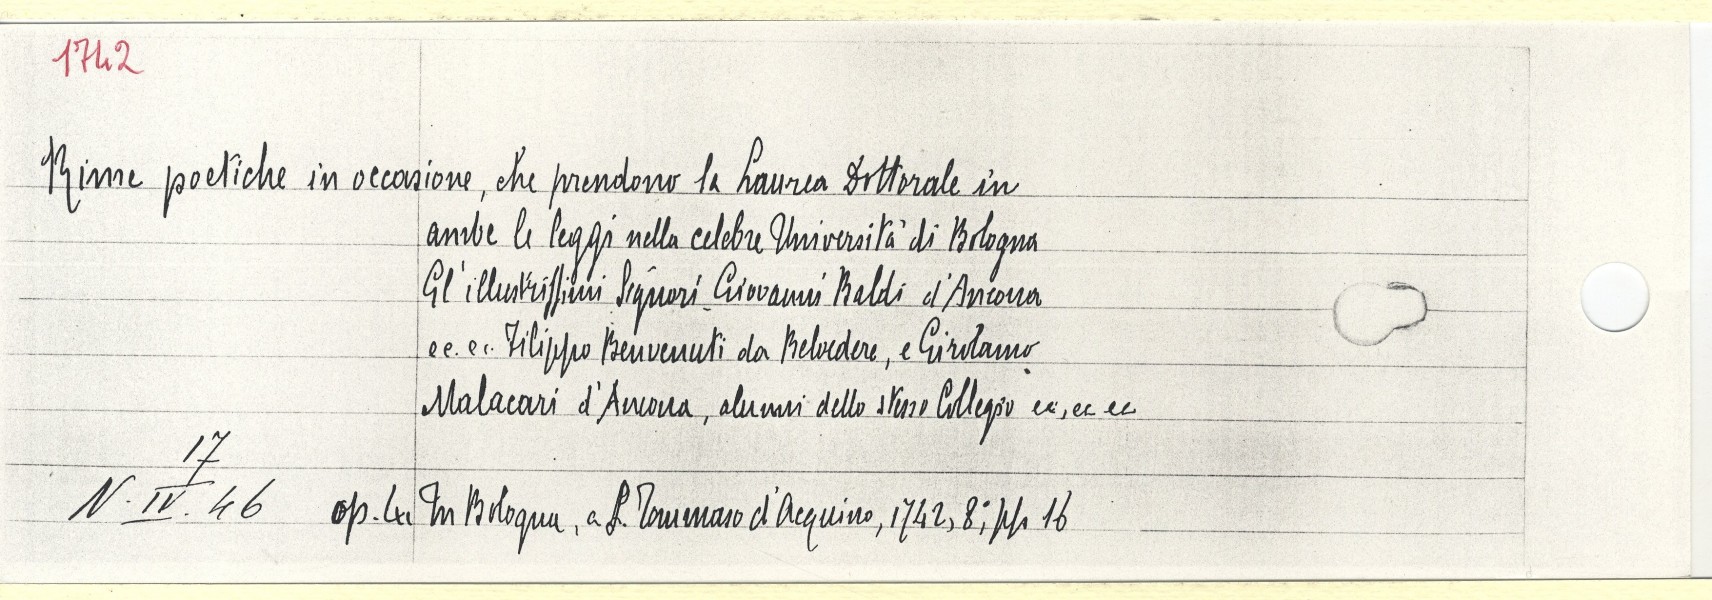 1742
Rime poetiche in occasione, che prendono la Laurea Dottorale in
ambe le leggi nella celebre Università di Bologna
Gl'illustrissimi Signori Giovanni Baldi d'Ancona
ec. ec. Filippo Benvenuti da Belvedere, e Girolamo
Malacari d'Ancona, alunni dello stesso Collegio ec, ec ec
17
N. IV. 46 op. In Bologna, a S. Tommaso d'Acquino, 1742, 8°, pp 16